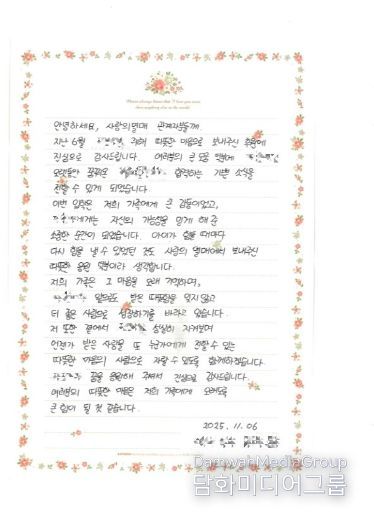 안녕하세요, 사랑의열매 관계자분들께.
지난 6월 위해 따뜻한 마음으로 보내주신 후원에
진심으로 감사드립니다. 여러분의 큰 도움 덕분에
오랫동안 꿈꿔온 합격하는 기쁜 소식을
전할 수 있게 되었습니다.
이번 입학은 저희 가족에게 큰 감동이었고,
에게는 자신의 가능성을 믿게 해 준
소중한 순간이 되었습니다. 아이가 힘들 때마다
다시 힘을 낼 수 있었던 것도 사랑의 열매에서 보내주신
따뜻한 응원 덕분이라 생각합니다.
저희 가족은 그 마음을 오래 기억하며,
앞으로도 받은 따뜻함을 잊지 않고
더 좋은 사람으로 성장하기를 바라고 있습니다.
저 또한 곁에서 성실히 지켜보며
언젠가 받은 사랑을 또 누군가에게 전할 수 있는
따뜻한 마음의 사람으로 자랄 수 있도록 함께하겠습니다.
꿈을 응원해 주셔서 진심으로 감사드립니다.
여러분의 따뜻한 마음은 저희 가족에게 오래도록
큰 힘이 될 것 같습니다.
2025. 11. 06
DamwahMediaGroup
담화미디어그룹